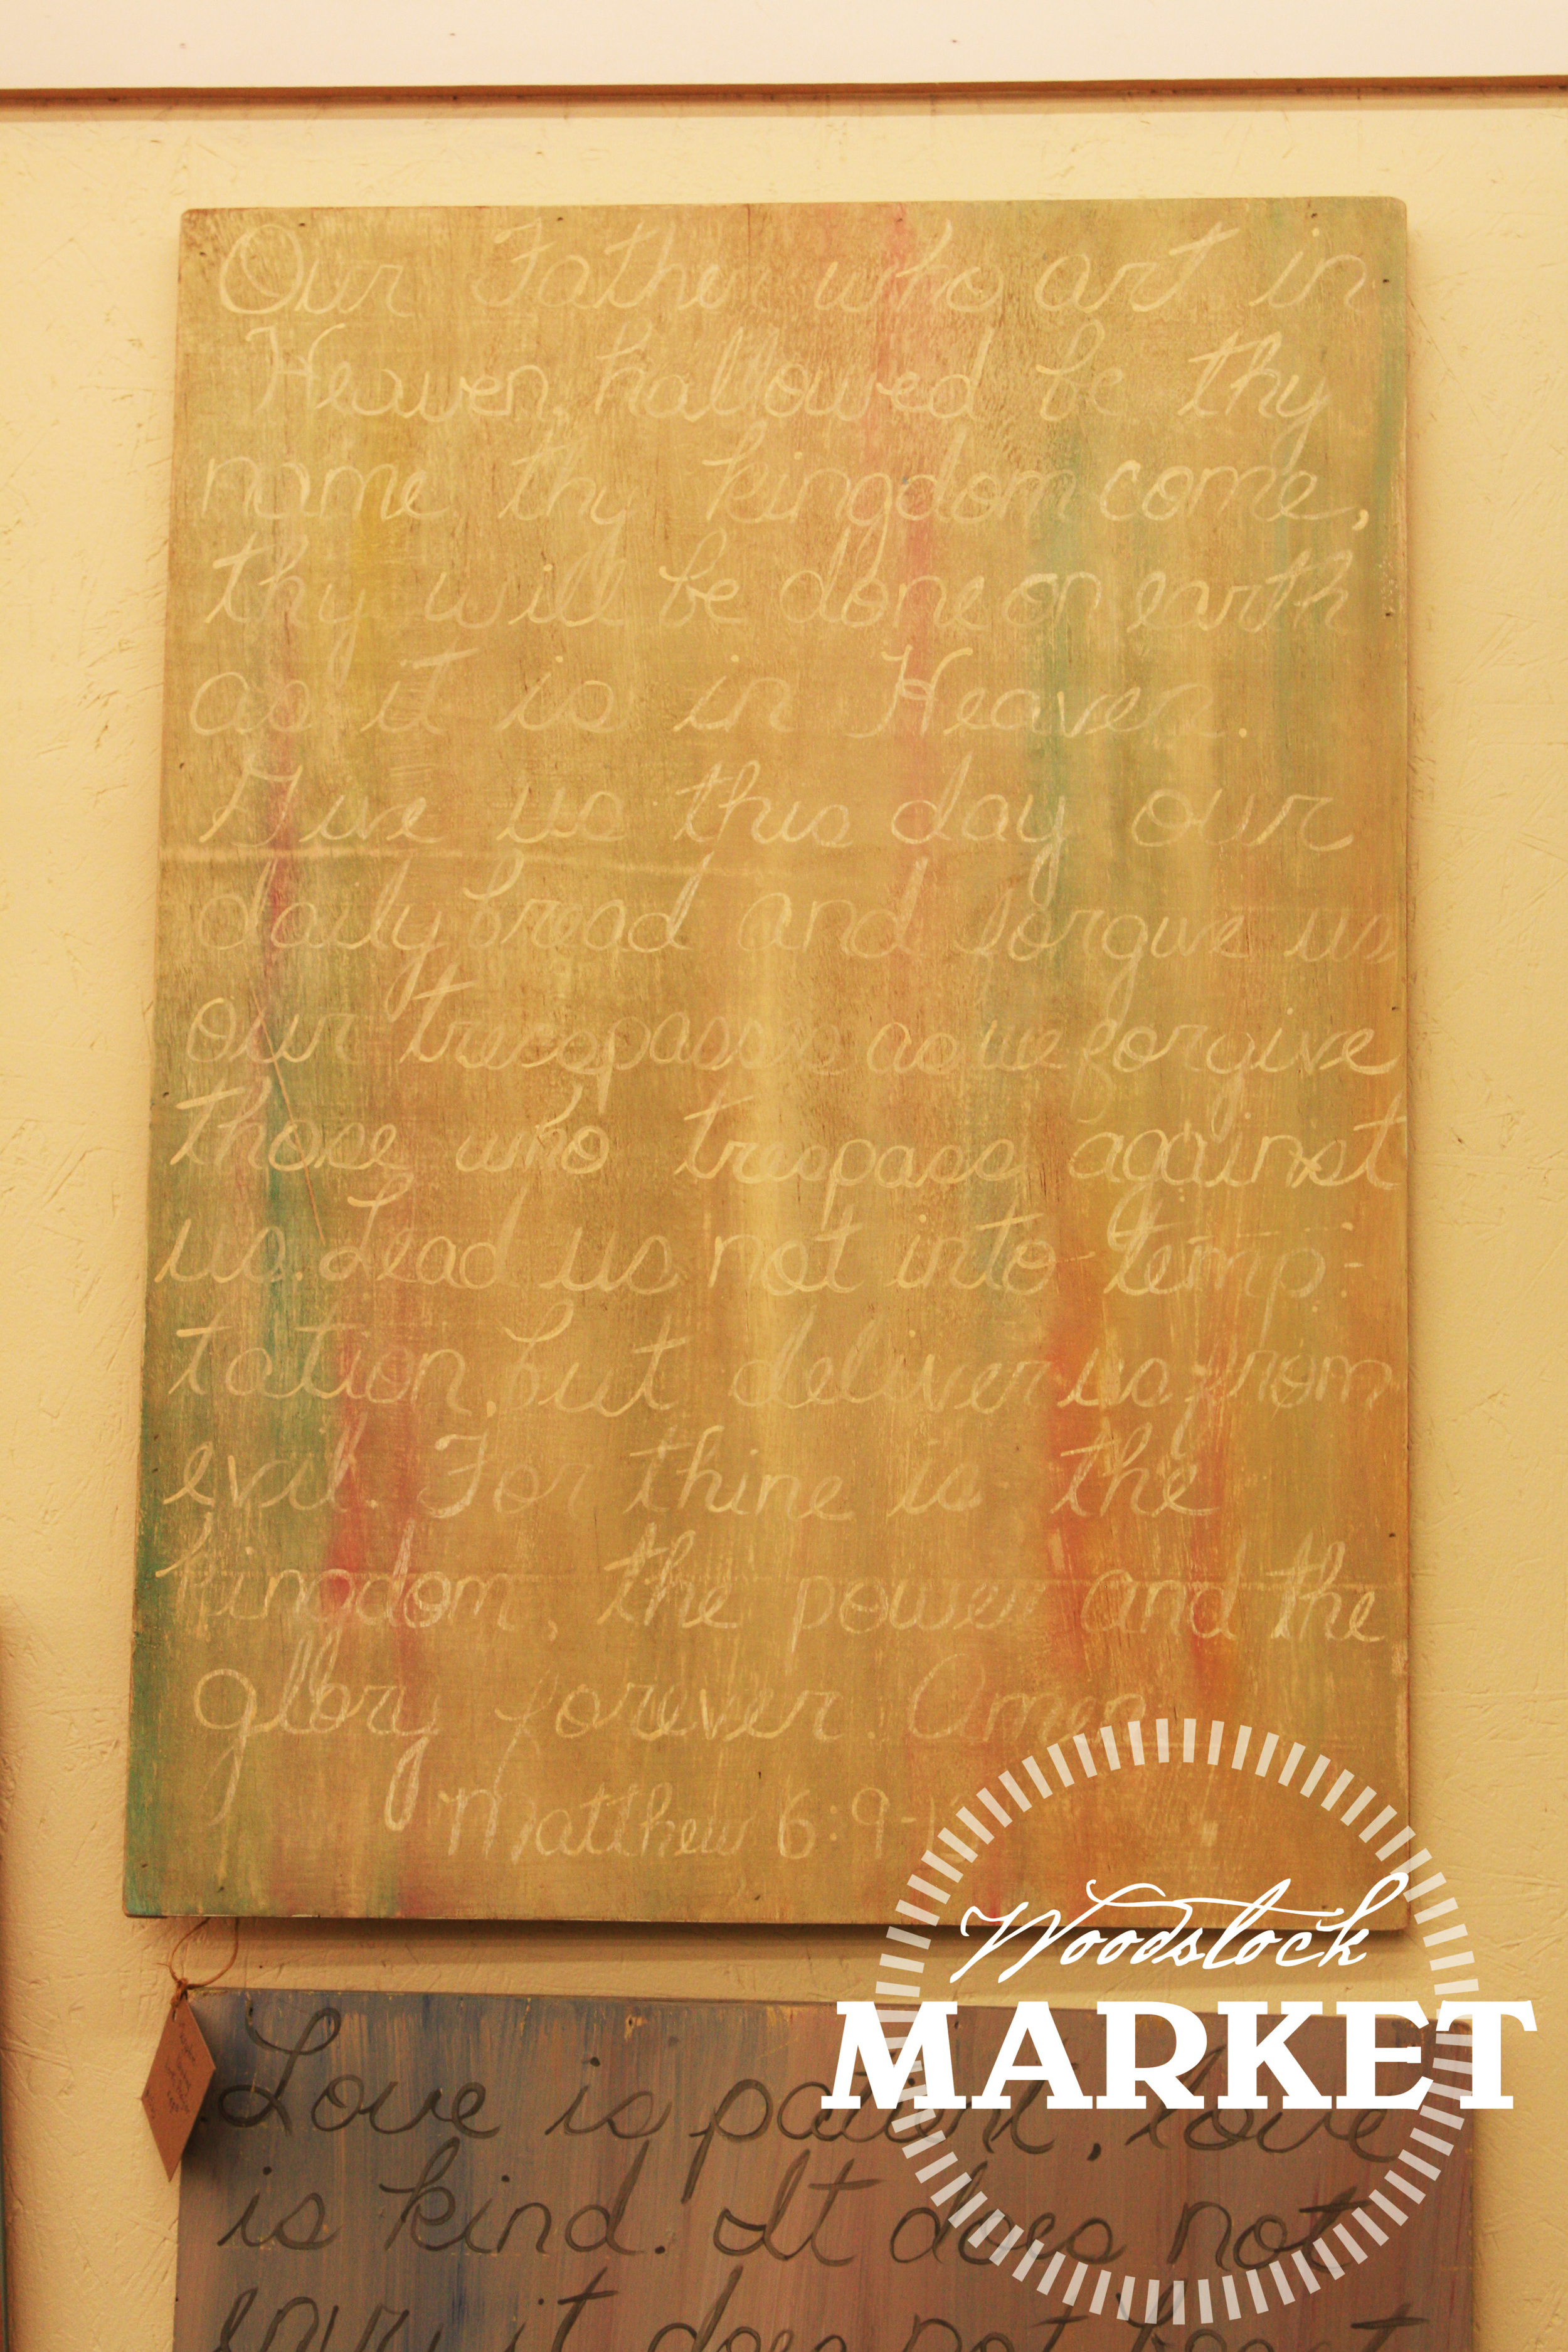 Our Father who art in
Heaven, hallowed be thy
name thy kingdom come,
thy will be done on earth
as it is in Heaven.
Give us this day our
daily bread and forgive us
our trespasses as we forgive
those who trespass against
us. Lead us not into temp-
tation, but deliver us from
evil. For thine is the
kingdom, the power and the
glory forever. Amen
Matthew 6:9-
Woodstock
MARKET
Love is patient, love
is kind. It does not
envy, it does not boast